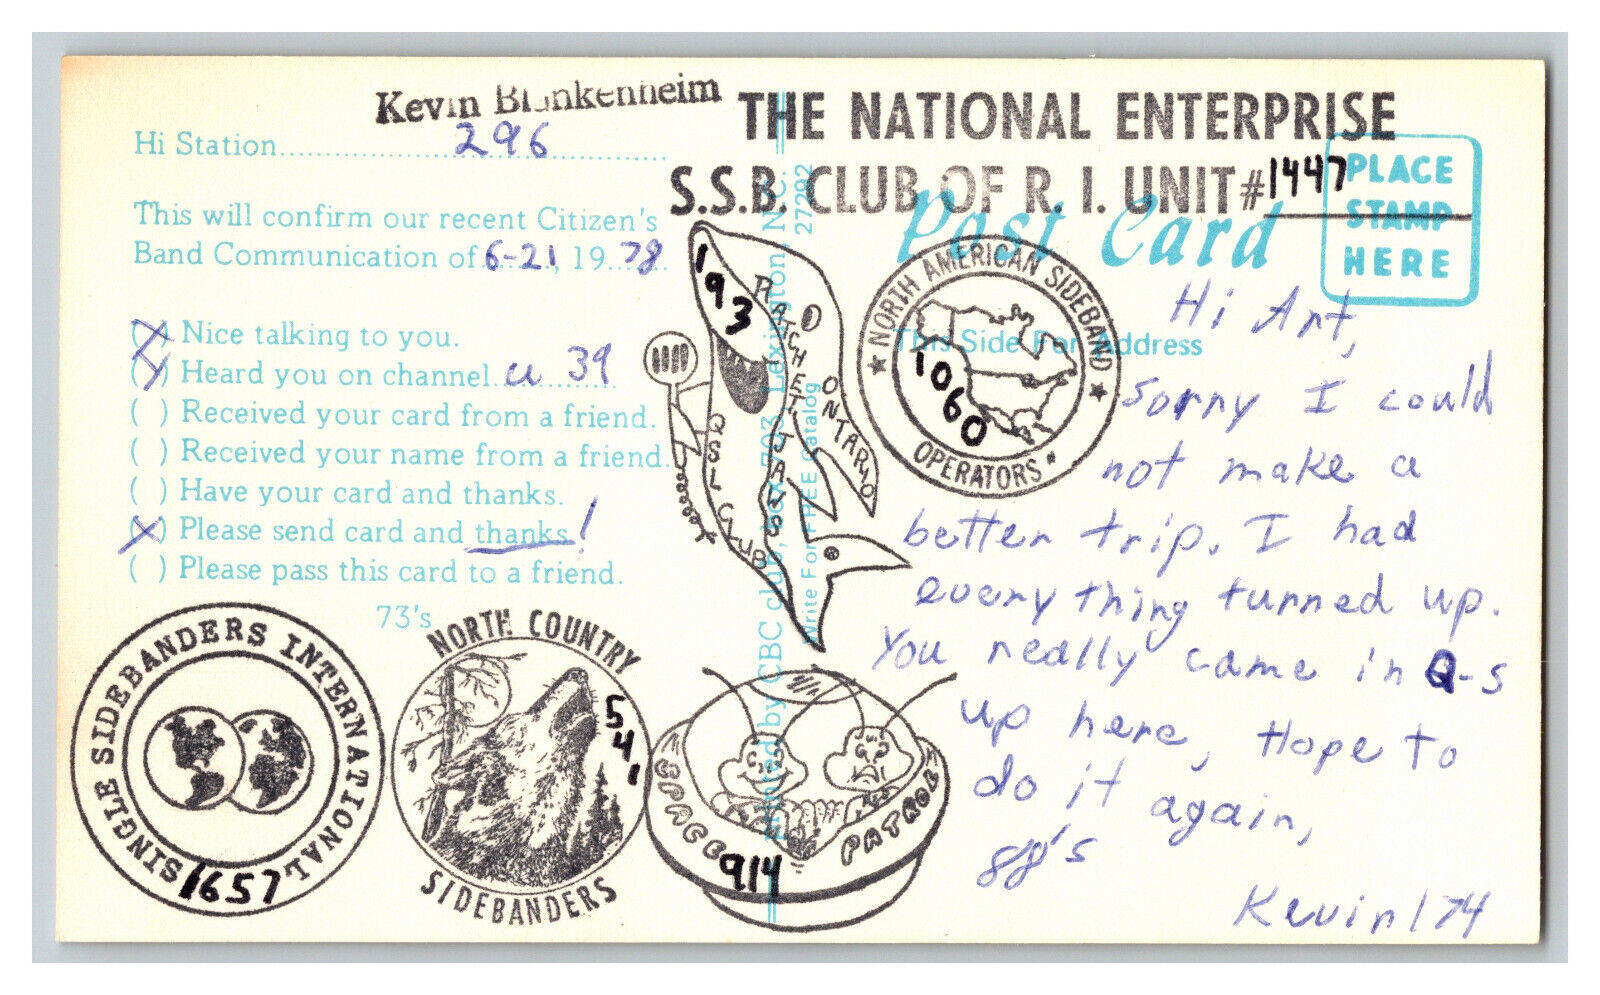 Kevin Blankenheim
THE NATIONAL ENTERPRISE
S.S.B. CLUB OF R. I. UNIT # 1447
Hi Station 296
This will confirm our recent Citizen's
Band Communication of 6-21, 19 78
(X) Nice talking to you.
(X) Heard you on channel 39
( ) Received your card from a friend.
( ) Received your name from a friend.
( ) Have your card and thanks.
(X) Please send card and thanks!
( ) Please pass this card to a friend.
73's
Post Card
PLACE
STAMP
HERE
This Side For Address
printed by CBC club, box 703, Lexington, N.C. 27292
Write For FREE Catalog
193
RATCHETJAWS
ONTARIO
QSL CLUB
NORTH AMERICAN SIDEBAND
OPERATORS
1060
SINGLE SIDEBANDERS INTERNATIONAL
1657
NORTH COUNTRY
SIDEBANDERS
541
SPACE PATROL
914
Hi Art,
sorry I could
not make a
better trip. I had
every thing turned up.
You really came in Q-5
up here, Hope to
do it again,
88's
Kevin 174